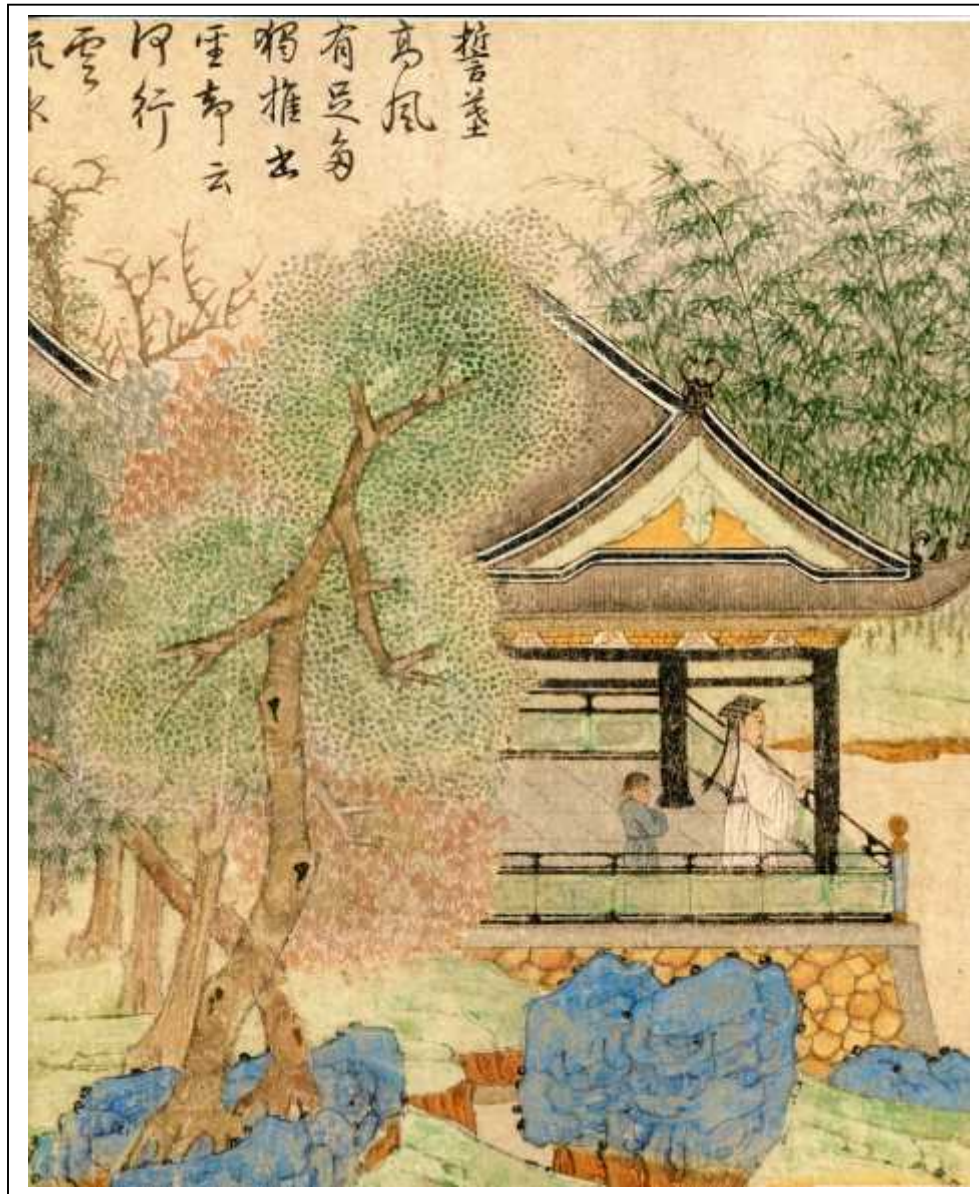 誓墓
高風
有足多
獨推書
聖却云
何行
雲
流水